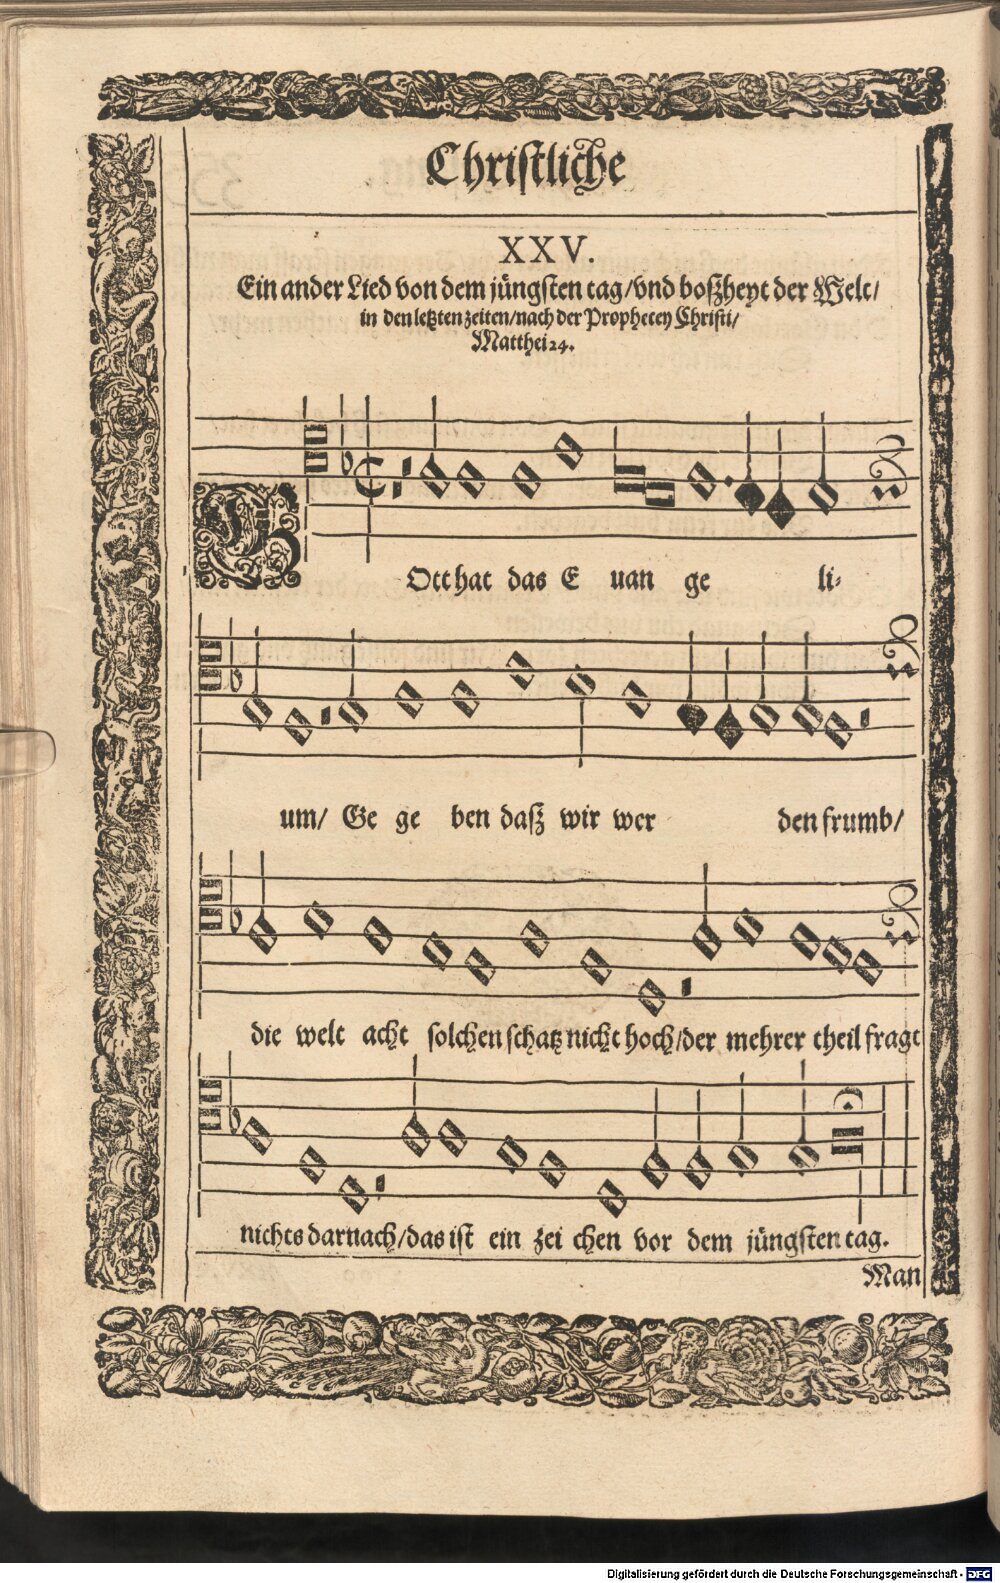 Christliche
XXV.
Ein ander Lied von dem jüngsten tag/vnd boßheyt der Welt/
in den letzten zeiten/nach der Prophecey Christi/
Matthei 24.
GOtt hat das E uan ge li-
um/ Ge ge ben daß wir wer den frumb/
die welt acht solchen schatz nicht hoch/der mehrer theil fragt
nichts darnach/das ist ein zei chen vor dem jüngsten tag.
Man
Digitalisierung gefördert durch die Deutsche Forschungsgemeinschaft - DFG